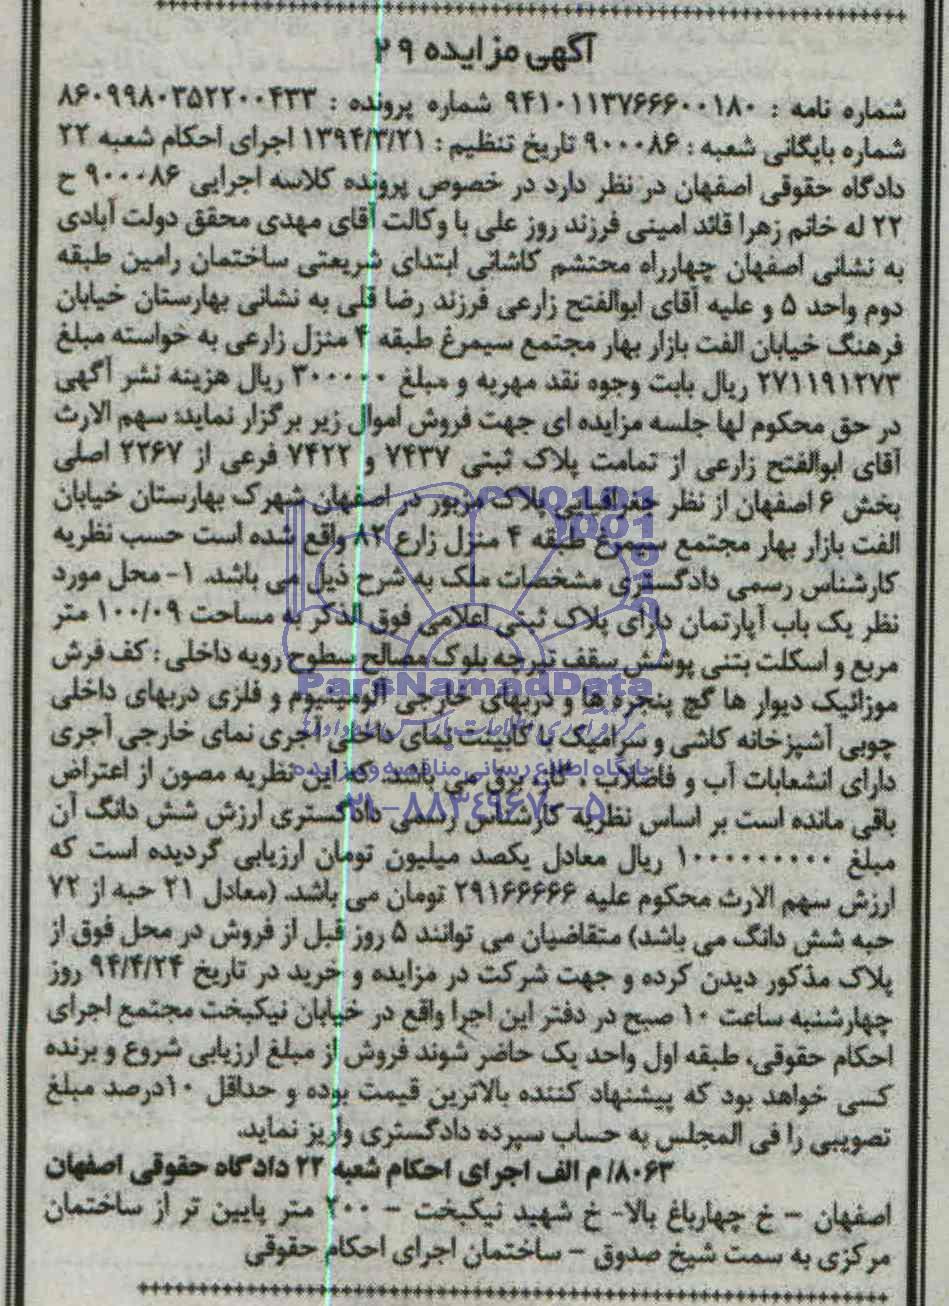 آگهی مزایده ۲۹
شماره نامه : ۹۴۱۰۱۱۳۷۶۶۶۰۰۱۸۰ شماره پرونده : ۸۶۰۹۹۸۰۳۵۲۲۰۰۴۳۳
شماره بایگانی شعبه : ۹۰۰۰۸۶ تاریخ تنظیم : ۱۳۹۴/۳/۲۱ اجرای احکام شعبه ۲۲
دادگاه حقوقی اصفهان در نظر دارد در خصوص پرونده کلاسه اجرایی ۹۰۰۰۸۶ ح
۲۲ له خانم زهرا قائد امینی فرزند روز علی با وکالت آقای مهدی محقق دولت آبادی
به نشانی اصفهان چهارراه محتشم کاشانی ابتدای شریعتی ساختمان رامین طبقه
دوم واحد ۵ و علیه آقای ابوالفتح زارعی فرزند رضا قلی به نشانی بهارستان خیابان
فرهنگ خیابان الفت بازار بهار مجتمع سیمرغ طبقه ۴ منزل زارعی به خواسته مبلغ
۲۷۱۱۹۱۲۷۳ ریال بابت وجوه نقد مهریه و مبلغ ۳۰۰۰۰۰ ریال هزینه نشر آگهی
در حق محکوم لها جلسه مزایده ای جهت فروش اموال زیر برگزار نماید: سهم الارث
آقای ابوالفتح زارعی از تمامت پلاک ثبتی ۷۴۳۷ و ۷۴۲۲ فرعی از ۲۲۶۷ اصلی
بخش ۶ اصفهان از نظر جغرافیایی پلاک مزبور در اصفهان شهرک بهارستان خیابان
الفت بازار بهار مجتمع سیمرغ طبقه ۴ منزل زارع ۸۲ واقع شده است حسب نظریه
کارشناس رسمی دادگستری مشخصات ملک به شرح ذیل می باشد. ۱- محل مورد
نظر یک باب آپارتمان دارای پلاک ثبتی اعلامی فوق الذکر به مساحت ۱۰۰/۰۹ متر
مربع و اسکلت بتنی پوشش سقف تیرچه بلوک مصالح سطوح رویه داخلی : کف فرش
موزائیک دیوار ها گچ پنجره ها و دربهای خارجی آلومینیوم و فلزی دربهای داخلی
چوبی آشپزخانه کاشی و سرامیک با کابینت نمای داخلی آجری نمای خارجی آجری
دارای انشعابات آب و فاضلاب ، گاز، برق می باشد. که این نظریه مصون از اعتراض
باقی مانده است بر اساس نظریه کارشناس رسمی دادگستری ارزش شش دانگ آن
مبلغ ۱۰۰۰۰۰۰۰۰۰ ریال معادل یکصد میلیون تومان ارزیابی گردیده است که
ارزش سهم الارث محکوم علیه ۲۹۱۶۶۶۶۶ تومان می باشد. (معادل ۲۱ حبه از ۷۲
حبه شش دانگ می باشد) متقاضیان می توانند ۵ روز قبل از فروش در محل فوق از
پلاک مذکور دیدن کرده و جهت شرکت در مزایده و خرید در تاریخ ۹۴/۴/۲۴ روز
چهارشنبه ساعت ۱۰ صبح در دفتر این اجرا واقع در خیابان نیکبخت مجتمع اجرای
احکام حقوقی، طبقه اول واحد یک حاضر شوند فروش از مبلغ ارزیابی شروع و برنده
کسی خواهد بود که پیشنهاد کننده بالاترین قیمت بوده و حداقل ۱۰درصد مبلغ
تصویبی را فی المجلس به حساب سپرده دادگستری واریز نماید.
۸۰۶۳/ م الف اجرای احکام شعبه ۲۲ دادگاه حقوقی اصفهان
اصفهان - خ چهارباغ بالا- خ شهید نیکبخت - ۲۰۰ متر پایین تر از ساختمان
مرکزی به سمت شیخ صدوق - ساختمان اجرای احکام حقوقی
ParsNamadData
پایگاه اطلاع رسانی مناقصه و مزایده
۰۲۱-۸۸۳۴۹۶۷۰-۵